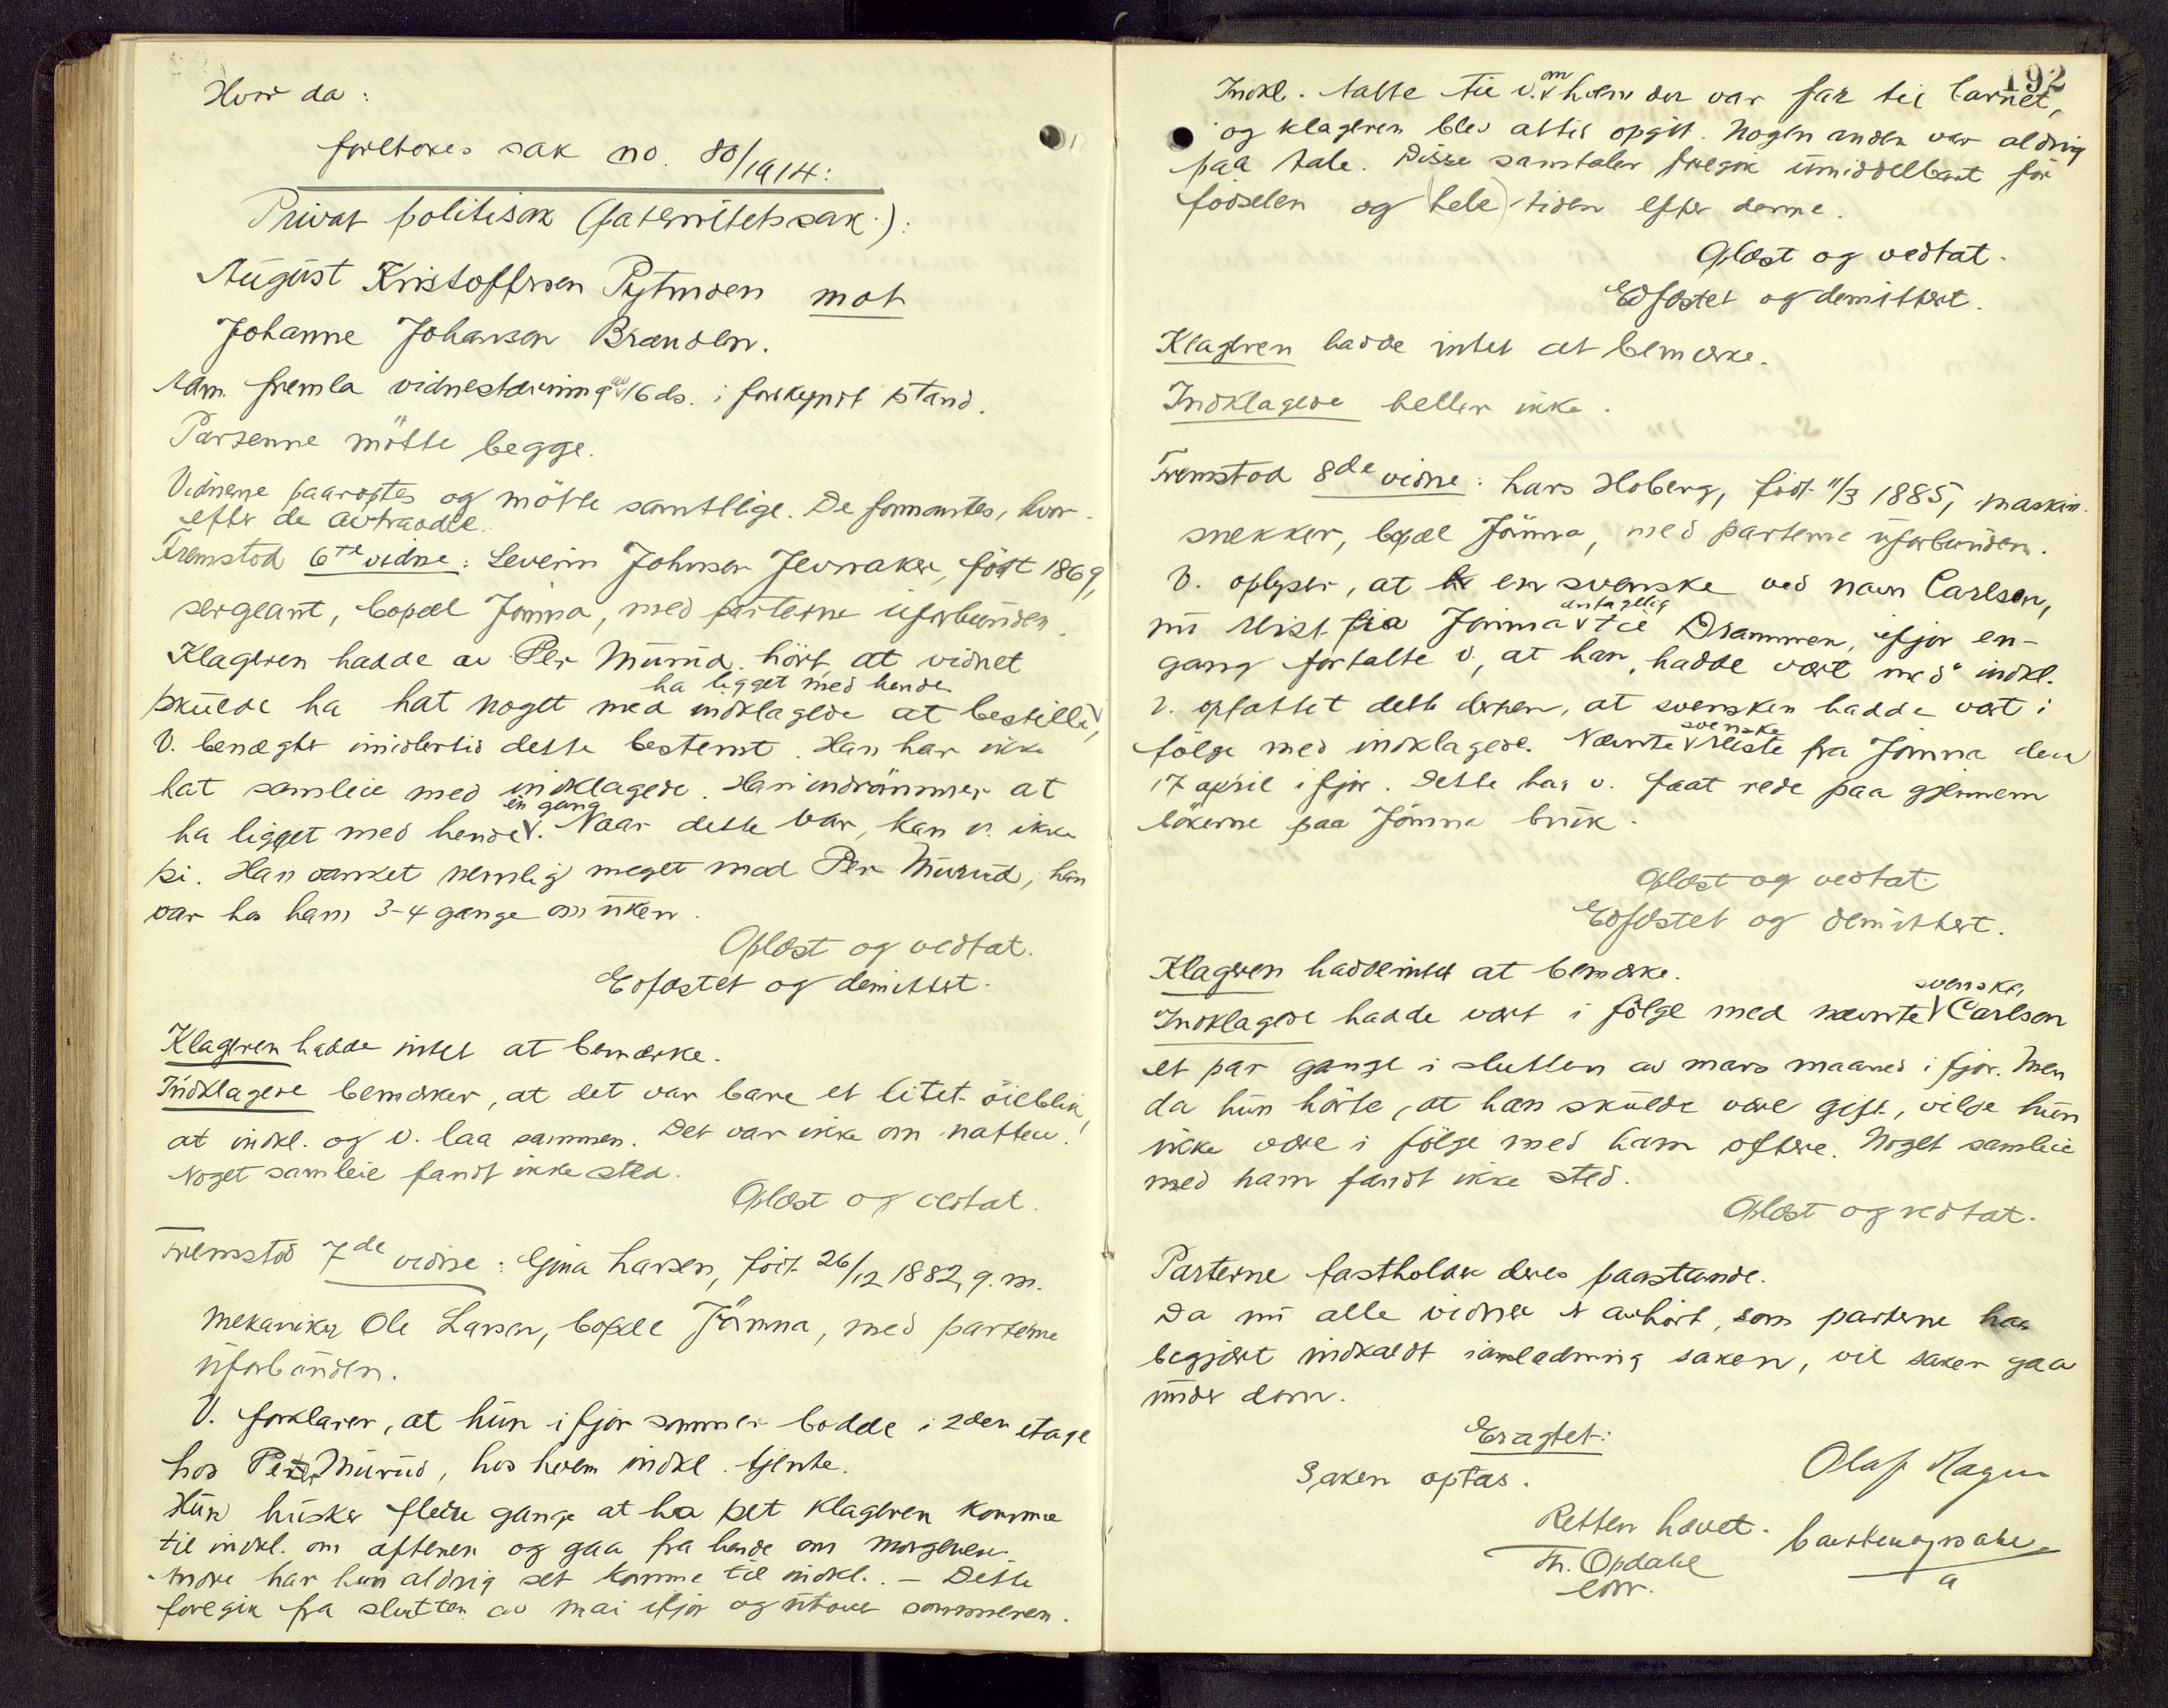 Hvor da:
foretokes sak no. 80/1914:
Privat politisak (paternitetssak.):
August Kristoffersen Pytmoen mot
Johanne Johansen Branden.
Adm. fremla vidnestævning av 16 ds. i forkyndt stand.
Partenne mötte begge.
Vidnene paaroptes og mötte samtlige. De formantes, hvor-
efter de avtraadte.
Fremstod 6te vidne: Severin Johnsen Jevnaker, födt 1869,
sergeant, bopæl Jömna, med parterne uforbunden.
Klageren hadde av Per Murud hört, at vidnet
ha ligget med hende
skulde ha hat noget med indklagede at bestille,
V. benægter imidlertid dette bestemt. Han har ikke
hat samleie med indklagede. Han indrömmer at
en gang
ha ligget med hende. Naar dette var, kan v. ikke
si. Han vanket nemlig meget med Per Murud, han
var hos ham 3-4 gange om uken.
Oplæst og vedtat.
Edfæstet og demittert.
Klageren hadde intet at bemærke.
Indklagede bemærker, at det var bare et litet öieblik,
at indkl. og v. laa sammen. Det var ikke om natten.
Noget samleie fandt ikke sted.
Oplæst og vedtat.
Fremstod 7de vidne: Gina Larsen, födt 26/12 1882, g. m.
mekaniker Ole Larsen, bopæl Jömna, med parterne
uforbunden.
V. forklarer, at hun ifjor sommer bodde i 2den etage
hos Per Murud, hos hvem indkl. tjente.
Hun husker flere gange at ha set klageren komme
til indkl. om aftenen og gaa fra hende om morgenen.
Andre har hun aldrig set komme til indkl. – Dette
foregik fra slutten av mai ifjor og utover sommeren.
192
om
Indkl. talte til v. hvem der var far til barnet,
og klageren blev altid opgit. Nogen anden var aldrig
paa tale. Disse samtaler foregik umiddelbart för
födselen og (hele) tiden efter denne.
Oplæst og vedtat.
Edfæstet og demittert.
Klageren hadde intet at bemærke.
Indklagede heller ikke.
Fremstod 8de vidne: Lars Hoberg, födt 11/3 1885, maskin-
snekker, bopæl Jömna, med parterne uforbunden.
V. oplyser, at en svenske ved navn Carlson,
antagelig
nu reist fra Jömna til Drammen, ifjor en-
gang fortalte v., at han „hadde vært med“ indkl.
V. opfattet dette derhen, at svensken hadde vært i
svenske
fölge med indklagede. Nævnte reiste fra Jömna den
17 april ifjor. Dette har v. faat rede paa gjennem
bökerne paa Jömna bruk.
Oplæst og vedtat
Edfæstet og demittert.
Klageren hadde intet at bemærke.
svenske,
Indklagede hadde vært i fölge med nævnte Carlson
et par gange i slutten av mars maaned i fjor. Men
da hun hörte, at han skulde være gift, vilde hun
ikke være i fölge med ham oftere. Noget samleie
med ham fandt ikke sted.
Oplæst og vedtat.
Parterne fastholder deres paastande.
Da nu alle vidner er avhört, som parterne har
begjært indkaldt i anledning saken, vil saken gaa
under dom.
Eragtet:
Saken optas.
Olaf Hagen
Retten hævet.
Th. Opdahl